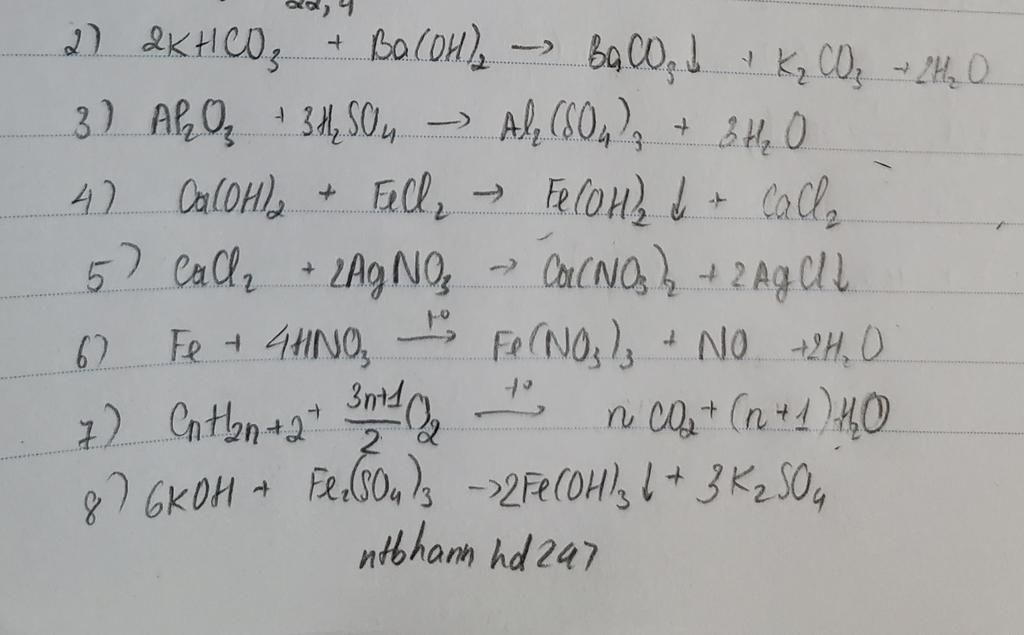 22,4
2) 2KHCO₃ + Ba(OH)₂ → BaCO₃↓ + K₂CO₃ + 2H₂O
3) Al₂O₃ + 3H₂SO₄ → Al₂(SO₄)₃ + 3H₂O
4) Ca(OH)₂ + FeCl₂ → Fe(OH)₂ ↓ + CaCl₂
5) CaCl₂ + 2AgNO₃ → Ca(NO₃)₂ + 2AgCl↓
6) Fe + 4HNO₃ –t°→ Fe(NO₃)₃ + NO + 2H₂O
7) CnH2n+2 + (3n+1)/2 O₂ –t°→ n CO₂ + (n+1) H₂O
8) 6KOH + Fe₂(SO₄)₃ → 2Fe(OH)₃ ↓ + 3K₂SO₄
ntbhann hd 247